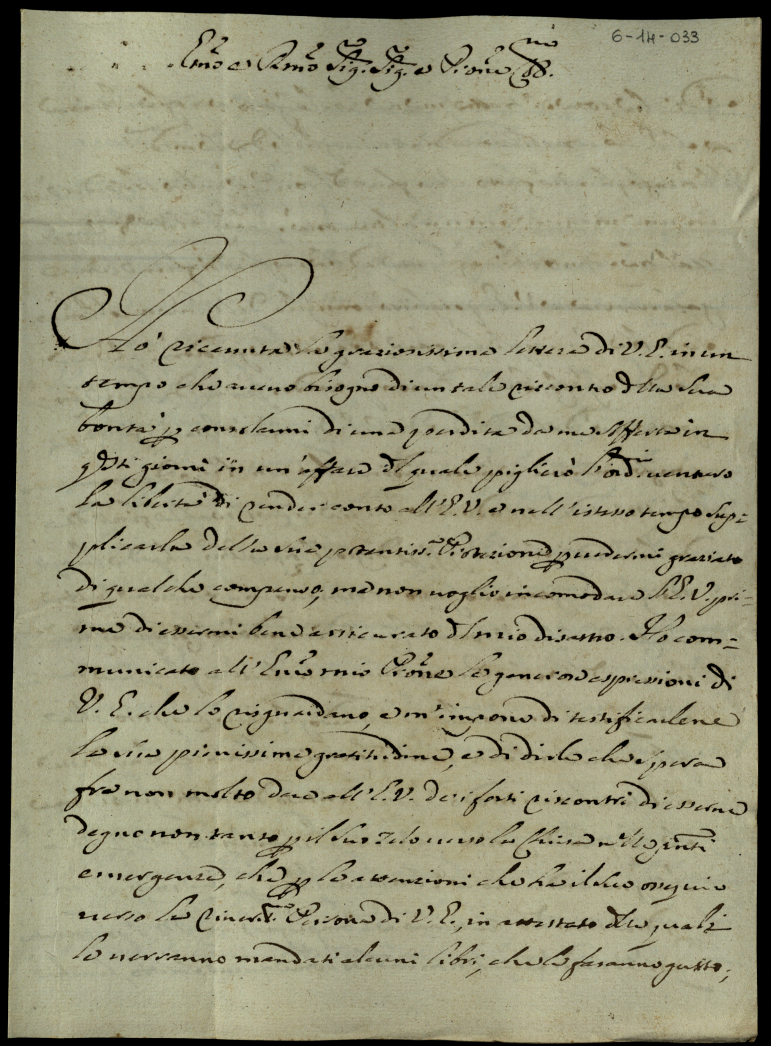 6-14-033
Em̃o e Rm̃o Sig. Sig. e Pron̄e
Hò ricevuta la graziosissima lettera di V. E. in un
tempo che avevo bisogno di un tale riscontro della sua
bontà p consolarmi di una perdita da me sofferta in
q̃sti giorni in un'affare del quale piglierò l'ordi. venturo
la libertà di render conto all'E. V. e nell'istesso tempo sup=
plicarla della sua potentiss.ᵃ Protezione p vedermi graziato
di qualche compenso, mà non voglio incomodare l'E. V. pri=
ma di essermi bene assicurato del mio disastro. Hò com=
municato all'Em̃o mio Prõne le generose espressioni di
V. E. che lo risguardano, e m'impone di testificarlene
la sua pienissima gratitudine, e di dirle che spera
frà non molto dare all'E. V. dei forti riscontri di esserne
degno non tanto p il suo zelo verso la Chiesa nelle p̃nti
emergenze, che p le attenzioni che hà il suo ossequio
verso la river.ᵐᵃ Persona di V. E., in attestato delle quali
le verranno mandati alcuni libri, che le faranno gusto,